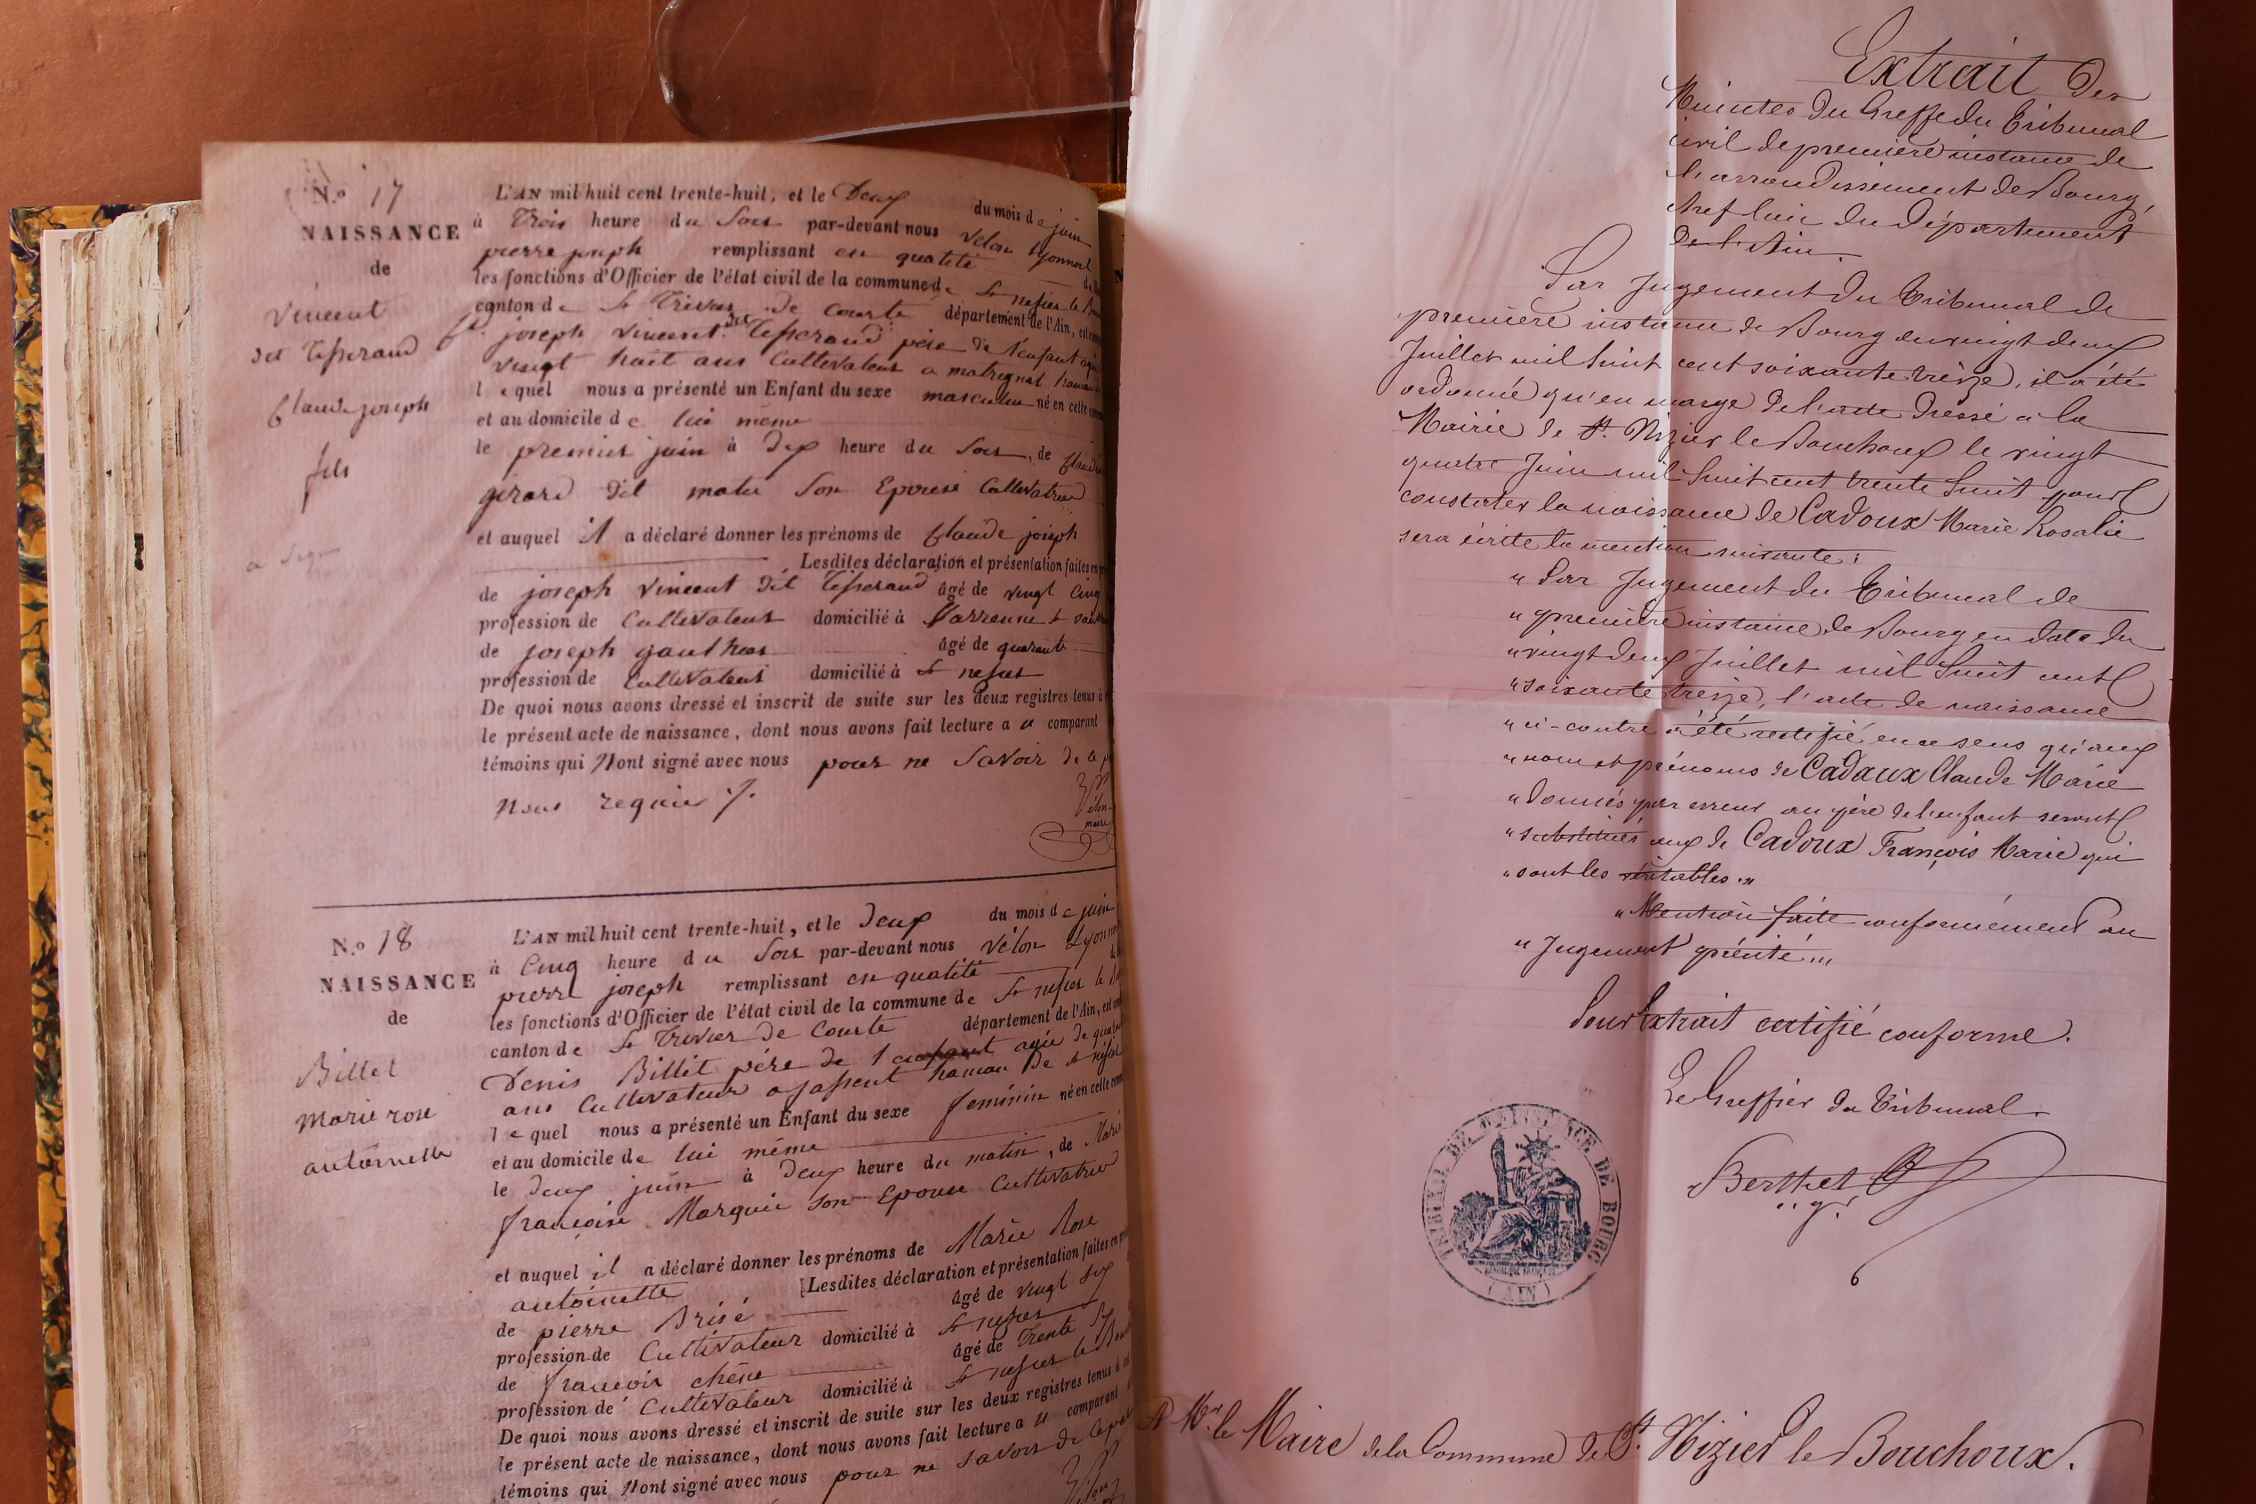 N.º 17
NAISSANCE
de
Vincent
dit Tisserand
Claude joseph
fils
L'AN mil huit cent trente-huit, et le Deux du mois de juin
à Trois heure du Soir par-devant nous Vélon Lyonnet
pierre joseph remplissant en qualité
les fonctions d'Officier de l'état civil de la commune de St nesier le
canton de St Trivier de Courte département de l'Ain, est
joseph vincent dit Tisserand père de l'enfant
vingt huit ans Cultivateur a matrignat
lequel nous a présenté un Enfant du sexe masculin né en cette
et au domicile de lui même
le premier juin à Dix heure du Soir, de
girard dit matu Son Epouse Cultivatrice
et auquel il a déclaré donner les prénoms de Claude joseph
Lesdites déclaration et présentation faites en
de joseph vincent dit Tisserand âgé de vingt cinq
profession de Cultivateur domicilié à Varenne
de joseph gauthier âgé de quarante
profession de Cultivateur domicilié à St nesier
De quoi nous avons dressé et inscrit de suite sur les deux registres tenus à
le présent acte de naissance, dont nous avons fait lecture au comparant
témoins qui n'ont signé avec nous pour ne Savoir de ce
Nous requis ./.
Vélon
maire
N.º 18
NAISSANCE
de
Billet
Marie rose
antoinette
L'AN mil huit cent trente-huit, et le Deux du mois de juin
à Cinq heure du Soir par-devant nous Vélon Lyonnet
pierre joseph remplissant en qualité
les fonctions d'Officier de l'état civil de la commune de St nesier le
canton de St Trivier de Courte département de l'Ain, est
Denis Billet père de l'enfant agée de
ans Cultivateur a jassent hameau De St
lequel nous a présenté un Enfant du sexe feminin né en cette
et au domicile de lui même
le Deux juin à Deux heure du matin, de Marie
françoise Marguin son Epouse Cultivatrice
et auquel il a déclaré donner les prénoms de Marie Rose
antoinette Lesdites déclaration et présentation faites en
de pierre Brisé âgé de vingt six
profession de Cultivateur domicilié à St nesier
de françois chêne âgé de trente six
profession de Cultivateur domicilié à St nesier le
De quoi nous avons dressé et inscrit de suite sur les deux registres tenus à
le présent acte de naissance, dont nous avons fait lecture au comparant
témoins qui n'ont signé avec nous pour ne Savoir de ce
Extrait des
Minutes du Greffe du Tribunal
civil de première instance de
l'arrondissement de Bourg,
chef lieu du département
de l'Ain.
Par Jugement du Tribunal de
première instance de Bourg du vingt deux
Juillet mil huit cent soixante treize, il a été
ordonné qu'en marge de l'acte dressé à la
Mairie de St. Nizier le Bouchoux le vingt
quatre Juin mil huit cent trente huit pour
constater la naissance de Cadoux Marie Rosalie
sera écrite la mention suivante :
" Par Jugement du Tribunal de
" première instance de Bourg en date du
" vingt deux Juillet mil huit cent
" soixante treize, l'acte de naissance
" ci-contre a été rectifié en ce sens qu'aux
" nom et prénoms de Cadaux Claude Marie
" donnés par erreur au père de l'enfant seront
" substitués ceux de Cadoux François Marie qui
" sont les véritables "
" Mention faite conformément au
" Jugement précité "
Pour Extrait certifié conforme.
Le Greffier du Tribunal
Berthet
TRIBUNAL DE 1RE INSTANCE DE BOURG
(AIN)
A Mr. le Maire de la Commune de St. Nizier le Bouchoux.